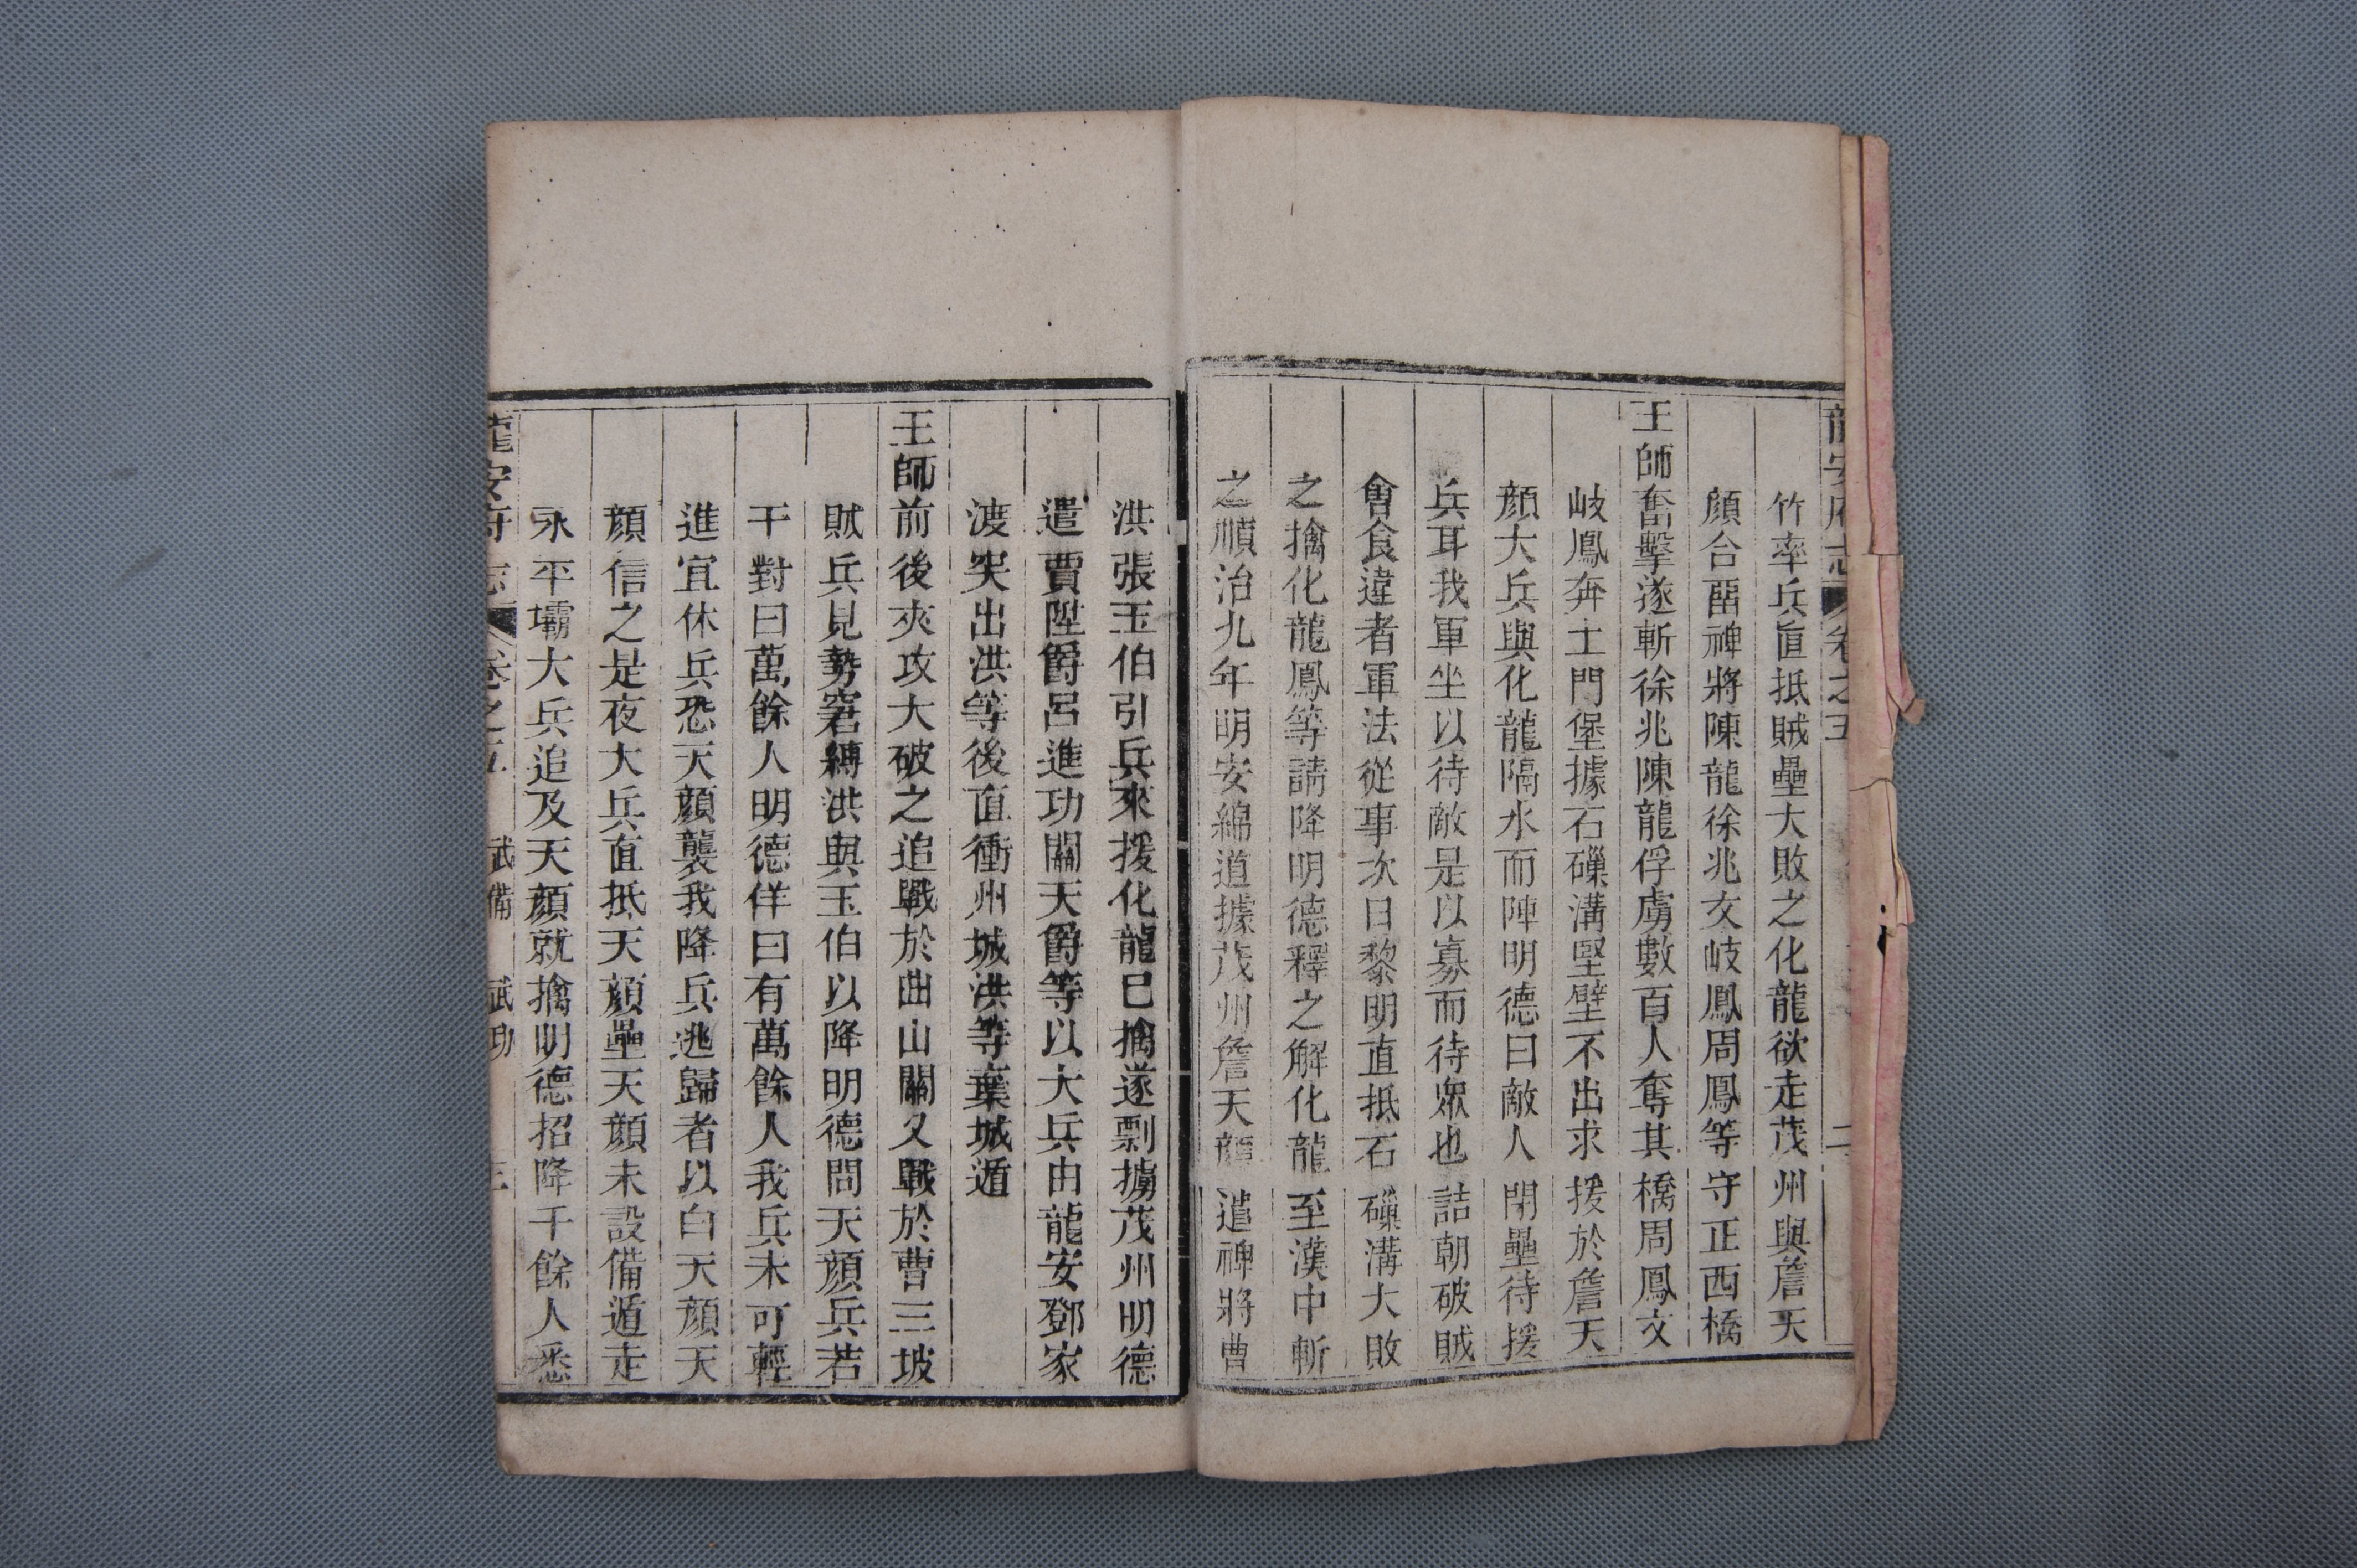 龍安府志 卷之五 二
竹率兵直抵賊壘大敗之化龍欲走茂州與詹天
顔合留禆將陳龍徐兆文岐鳳周鳳等守正西橋
王師奮擊遂斬徐兆陳龍俘虜數百人奪其橋周鳳文
岐鳳奔土門堡據石磉溝堅壁不出求援於詹天
顔大兵與化龍隔水而陣明德曰敵人閉壘待援
兵耳我軍坐以待敵是以寡而待衆也詰朝破賊
會食違者軍法從事次日黎明直抵石磉溝大敗
之擒化龍鳳等請降明德釋之解化龍至漢中斬
之順治九年明安綿道據茂州詹天顔遣禆將曹
洪張玉伯引兵來援化龍巳擒遂剽擄茂州明德
遣賈陞爵呂進功關天爵等以大兵由龍安鄧家
渡突出洪等後直衝州城洪等棄城遁
王師前後夾攻大破之追戰於曲山關又戰於曹三坡
賊兵見勢窘縛洪與玉伯以降明德問天顔兵若
干對曰萬餘人明德佯曰有萬餘人我兵未可輕
進宜休兵恐天顔襲我降兵逃歸者以白天顔天
顔信之是夜大兵直抵天顔壘天顔未設備遁走
永平壩大兵追及天顔就擒明德招降千餘人悉
龍安府志 卷之五 武備 武功 三